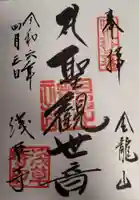 奉拝
金龍山
聖觀世音
令和六年
四月三日
淺草寺